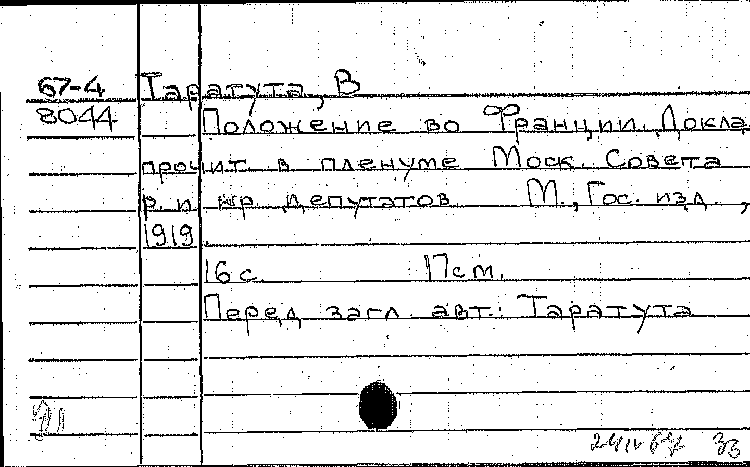 67-4 Таратута, В
8044 Положение во Франции. Докла
прочит. в пленуме Моск. Совета
р. и кр. депутатов М., Гос. изд.,
1919.
16 с. 17 см.
Перед загл. авт.: Таратута